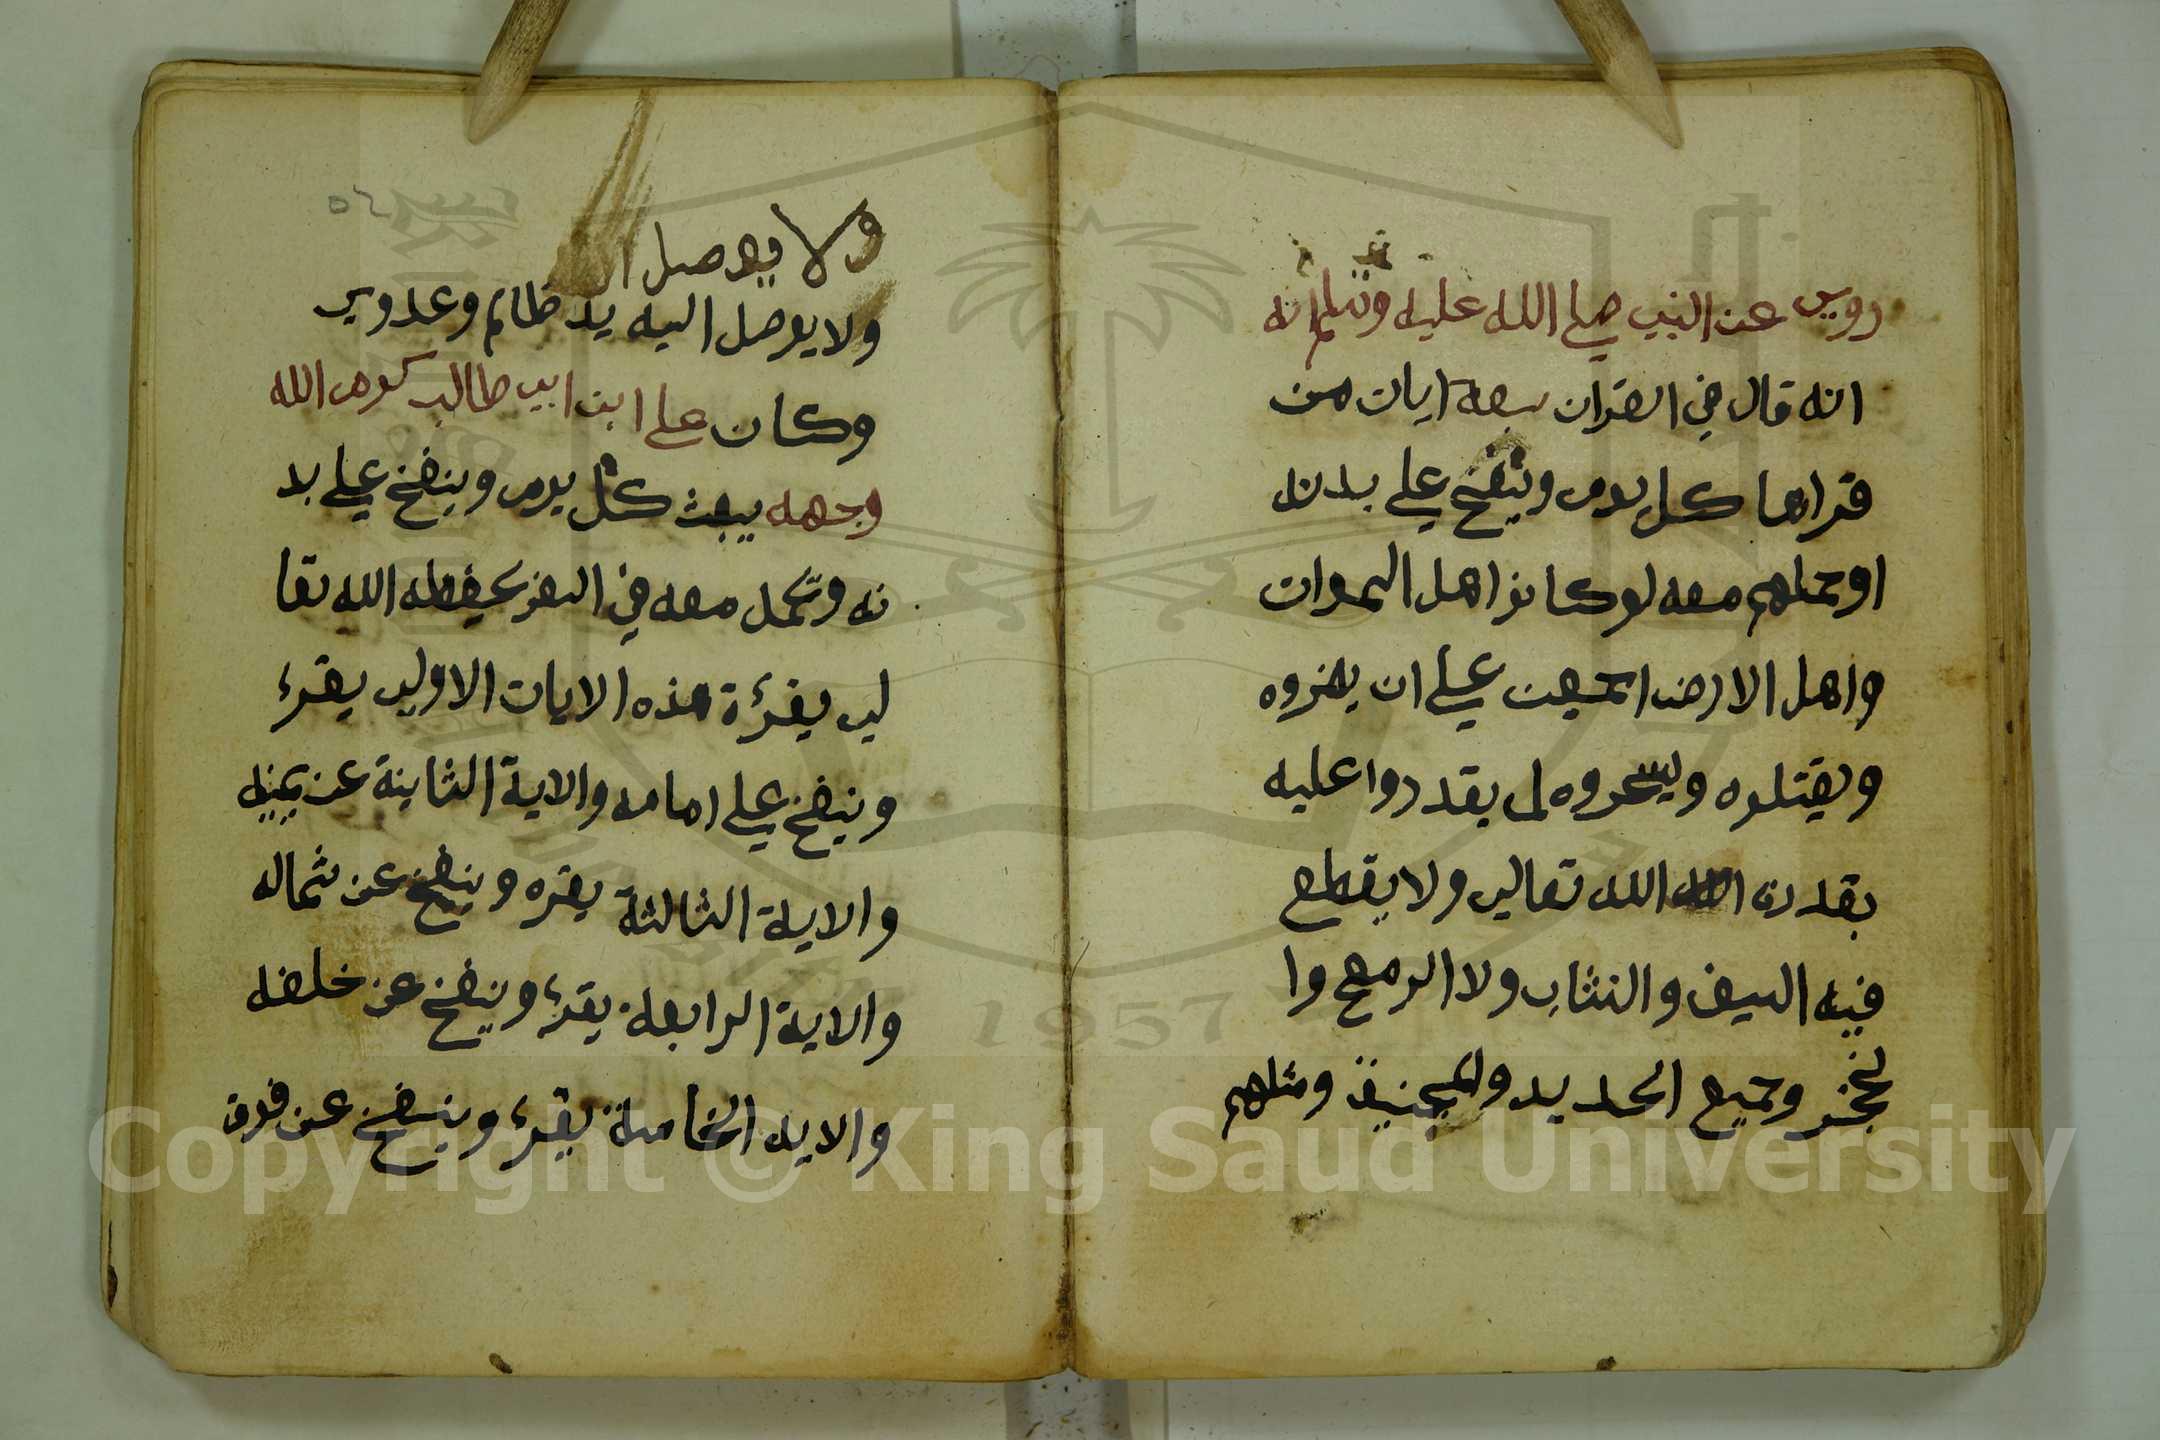 روي عن النبي صلى الله عليه وسلم انه
انه قال في القران سبعة ايات من
قراها كل يوم وينفخ على بدنه
او حملهم معه لو كانو اهل السموات
واهل الارض اجمعين على ان يضروه
ويقتلوه ويسحروه لم يقدروا عليه
بقدرت الله الله تعالى ولا يقطع
فيه السيف والنشاب ولا الرمح وا
لخنجر وجميع الحديد والمجنيق ومثلهم
٥٤
ولا يوصل ا
ولا يوصل اليه يد ظالم وعدوي
وكان علي ابن ابي طالب كرم الله
وجهه يبعث كل يوم وينفخ على بد
نه وتحمل معه في السفر يحفظه الله تعا
لى يقرءة هذه الايات الاولى يقرء
وينفخ على امامه والاية الثانية عن يمينه
والاية الثالثة يقره وينفخ عن شماله
والاية الرابعة يقرء وينفخ عن خلفه
والايه الخامسة يقرء وينفخ عن فوق
1957
Copyright © King Saud University